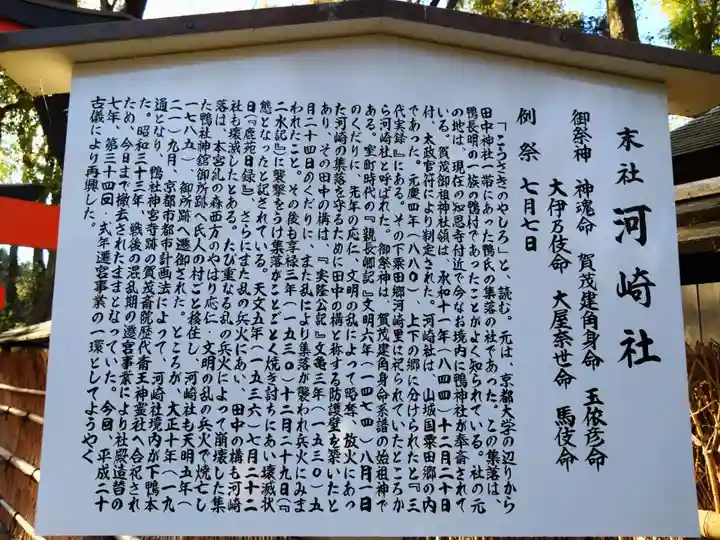 末社 河崎社
御祭神 神魂命 賀茂建角身命 玉依彦命
大伊乃伎命 大屋奈世命 馬伎命
例祭 七月七日
「こうさきのやしろ」と、読む。元は、京都大学の辺りから
田中神社一帯にあった鴨氏の集落の社であった。この集落は、
鴨長明の一族の鴨村であったことがよく知られている。社の元
の地は、現在の知恩寺付近で今なお境内に鴨神社が奉斎されて
いる。賀茂御祖神社領は、承和十一年(八四四)十二月二十日
付、太政官符により制定された。河崎社は、山城国粟田郷の内
であった。元慶四年(八八〇)、上下の郷に分けられたと『三
代実録』にある。その下粟田郷河崎里に祀られていたところか
ら河崎社と呼ばれた。御祭神は、賀茂建角身命系譜の始祖神で
ある。室町時代の『親長卿記』文明六年(一四七四)八月一日
のくだりに、先年の応仁、文明の乱によって略奪、放火にあっ
た河崎の集落を守るために田中の構と称する防護壁を築いたと
あり、その田中の構は、『実隆公記』文亀三年(一五三〇)五
月二十四日のくだりに、また乱により集落が襲われ兵火にみま
われたこと。その後も享禄三年(一五三〇)十二月二十九日(『
二水記』)に襲撃をうけ集落がことごとく焼き討ちにあい壊滅状
態となったと記されている。天文五年(一五三六)七月二十二
日(『鹿苑日録』)、さらにまた乱の兵火にあい、田中の構も河崎
社も壊滅したとある。たび重なる乱の兵火によって崩壊した集
落は、本宮乱の森西方のやはり応仁、文明の乱の兵火で焼亡し
た鴨社神館御所跡へ氏人の村ごと移住し、河崎社も天明五年(
一七八五)、御所跡へ遷御された。ところが、大正十年(一九
二一)九月、京都市都市計画法によって、河崎社境内が下鴨本
通となり、鴨社神宮寺跡の賀茂斎院歴代斎王神霊社へ合祀され
た。昭和三十三年、戦後の混乱期の遷宮事業により社殿造替の
ため、今日まで撤去されたままとなっていた。今回、平成二十
七年、第三十四回・式年遷宮事業の一環としてようやく
古儀により再興した。